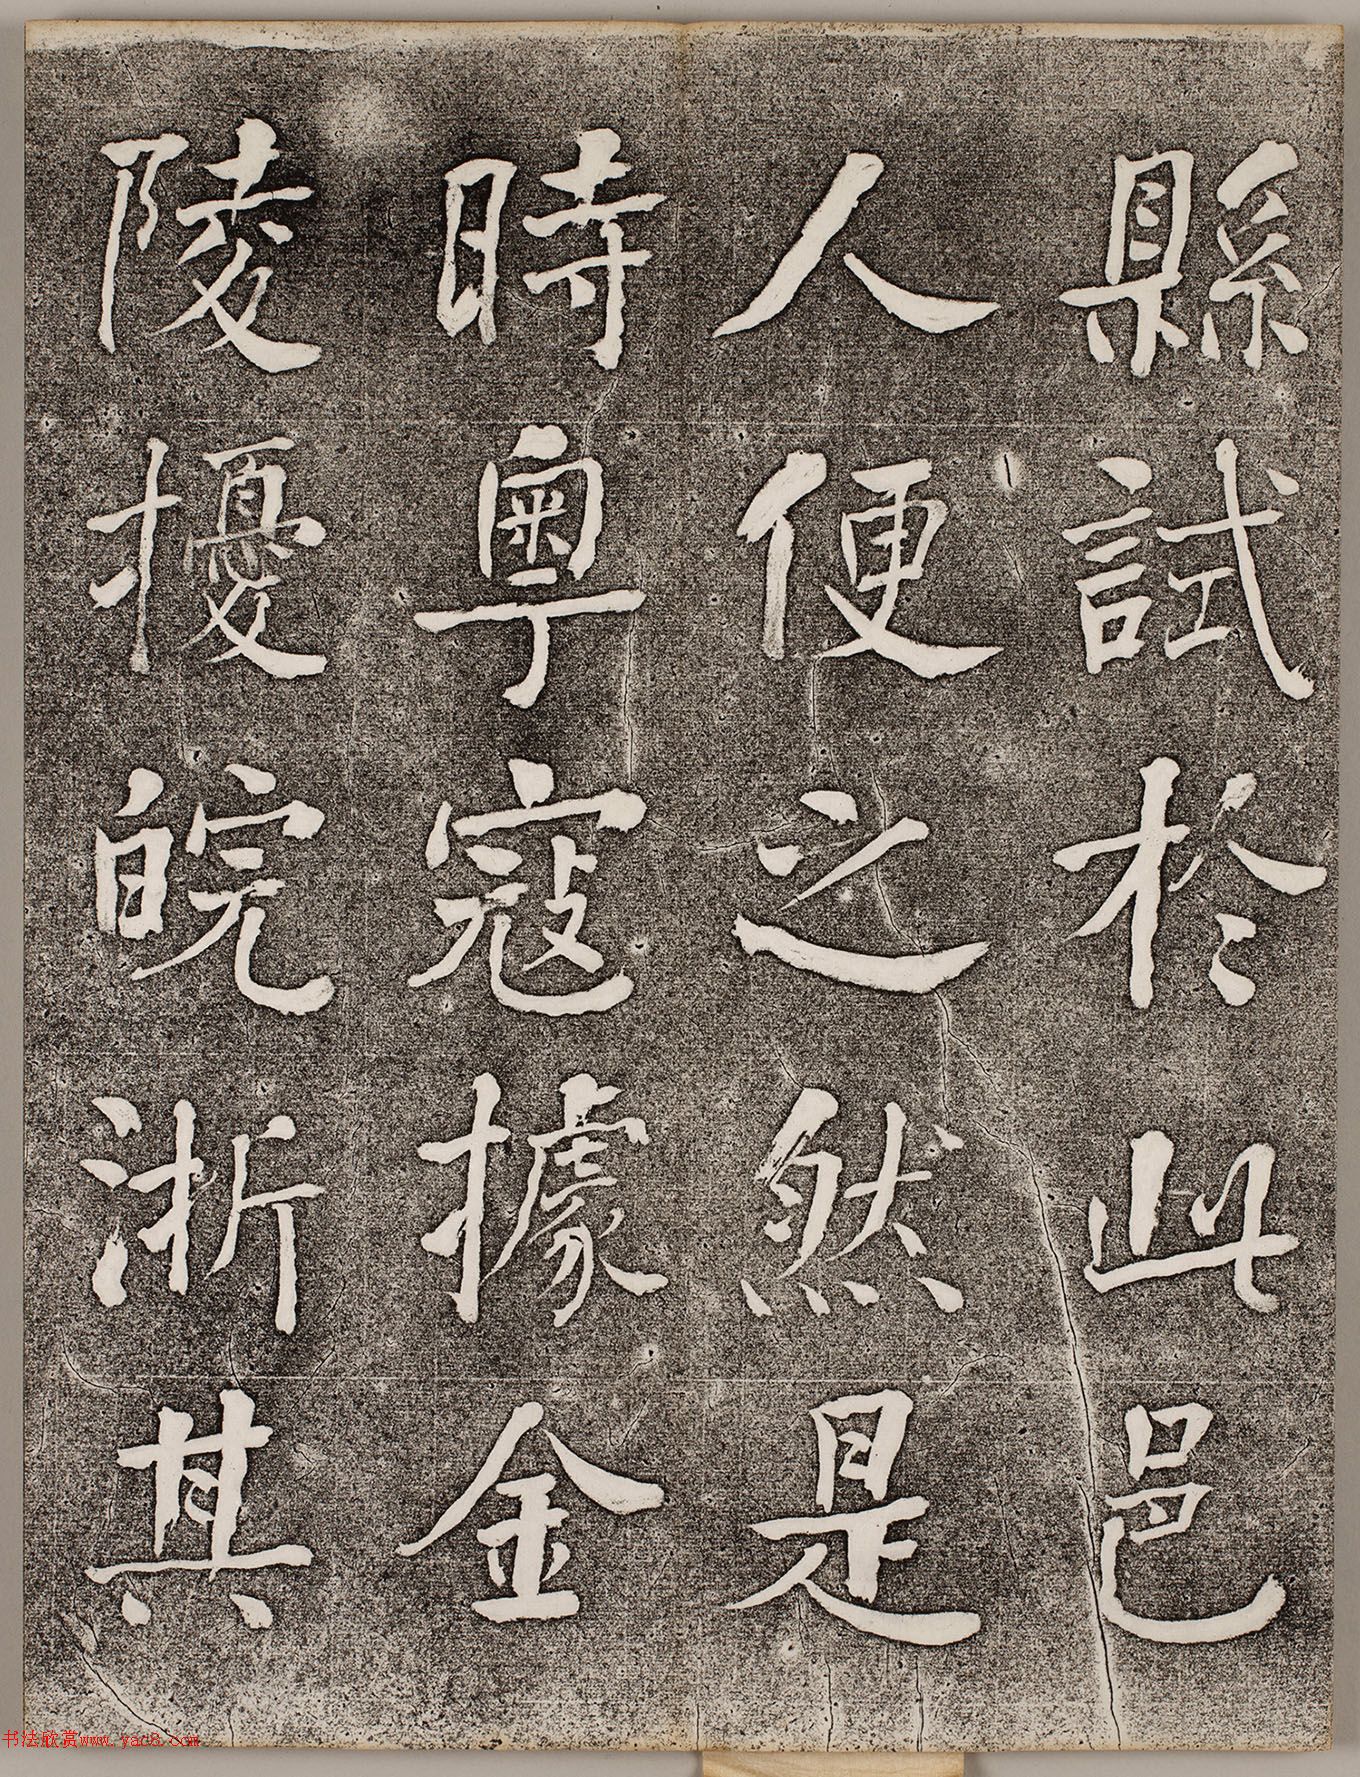 縣試於此邑
人便之然是
時粵寇據金
陵擾皖浙其
书法欣赏www.yac8.com